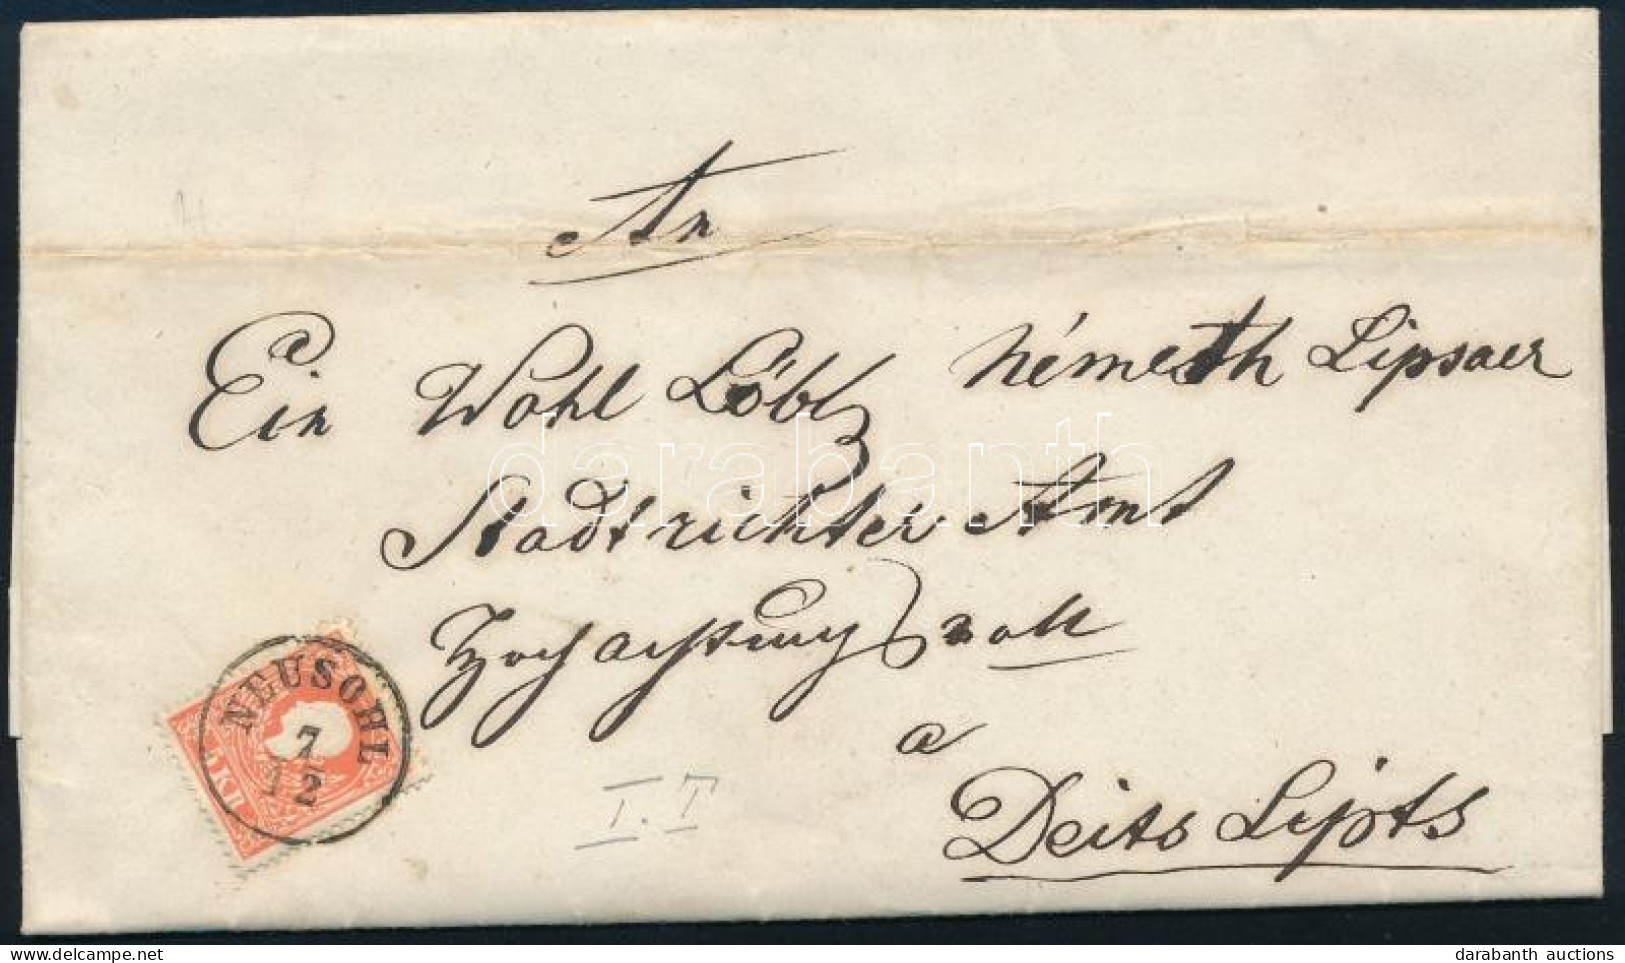 An
Ein Wohl Löbl Németh Lipsaer
Stadtrichter Amt
Hochachtungsvoll
a
Deits Lipts
NEUSOHL
7
12
5 KR
I.T
darabanth
darabanth auctions